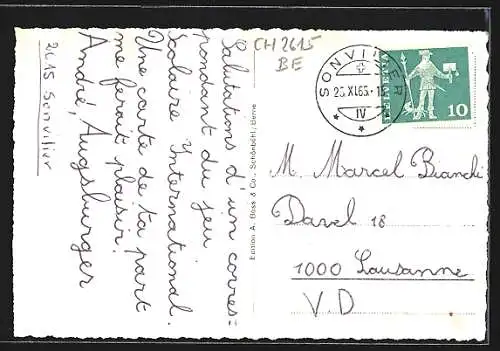 Salutations d'un corres=
pondant du jeu
scolaire International.
Une carte de ta part
me ferait plaisir!
André, Augsburger
2615 Sonvilier
CH 2615
BE
SONVILIER
IV
HELVETIA
10
Edition A. Boss & Co., Schönbühl / Berne
M. Marcel Bianchi
Davel 18
1000 Lausanne
VD